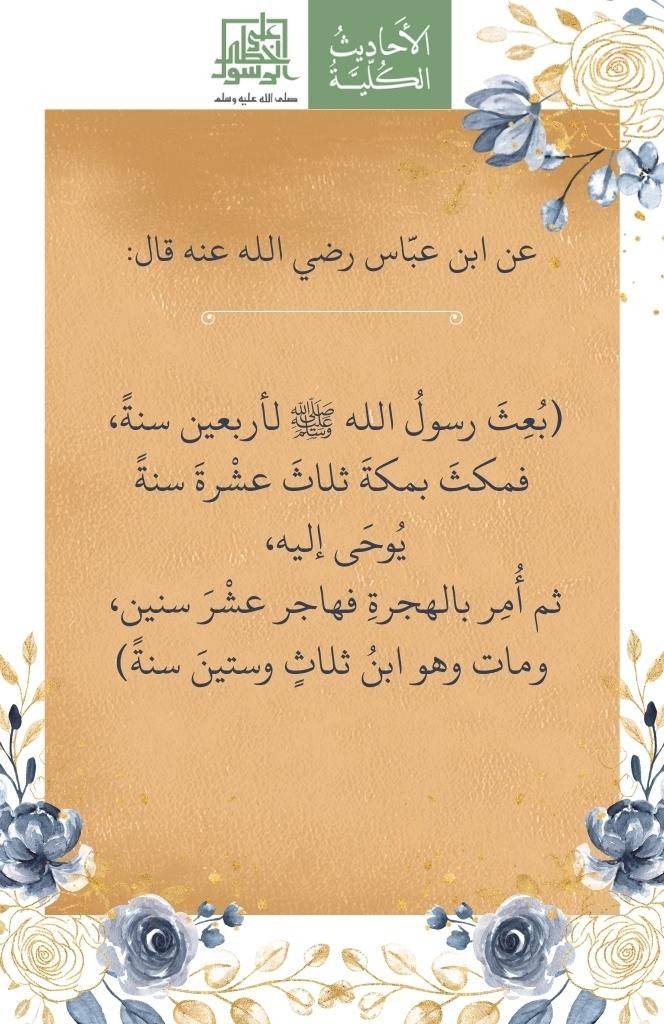 على خطى الرسول
صلى الله عليه وسلم
الأَحَاديثُ
الكُلِّيَّةُ
عن ابن عبّاس رضي الله عنه قال:
(بُعِثَ رسولُ الله ﷺ لأربعين سنةً،
فمكثَ بمكةَ ثلاثَ عشْرةَ سنةً
يُوحَى إليه،
ثم أُمِر بالهجرةِ فهاجر عشْرَ سنين،
ومات وهو ابنُ ثلاثٍ وستينَ سنةً)